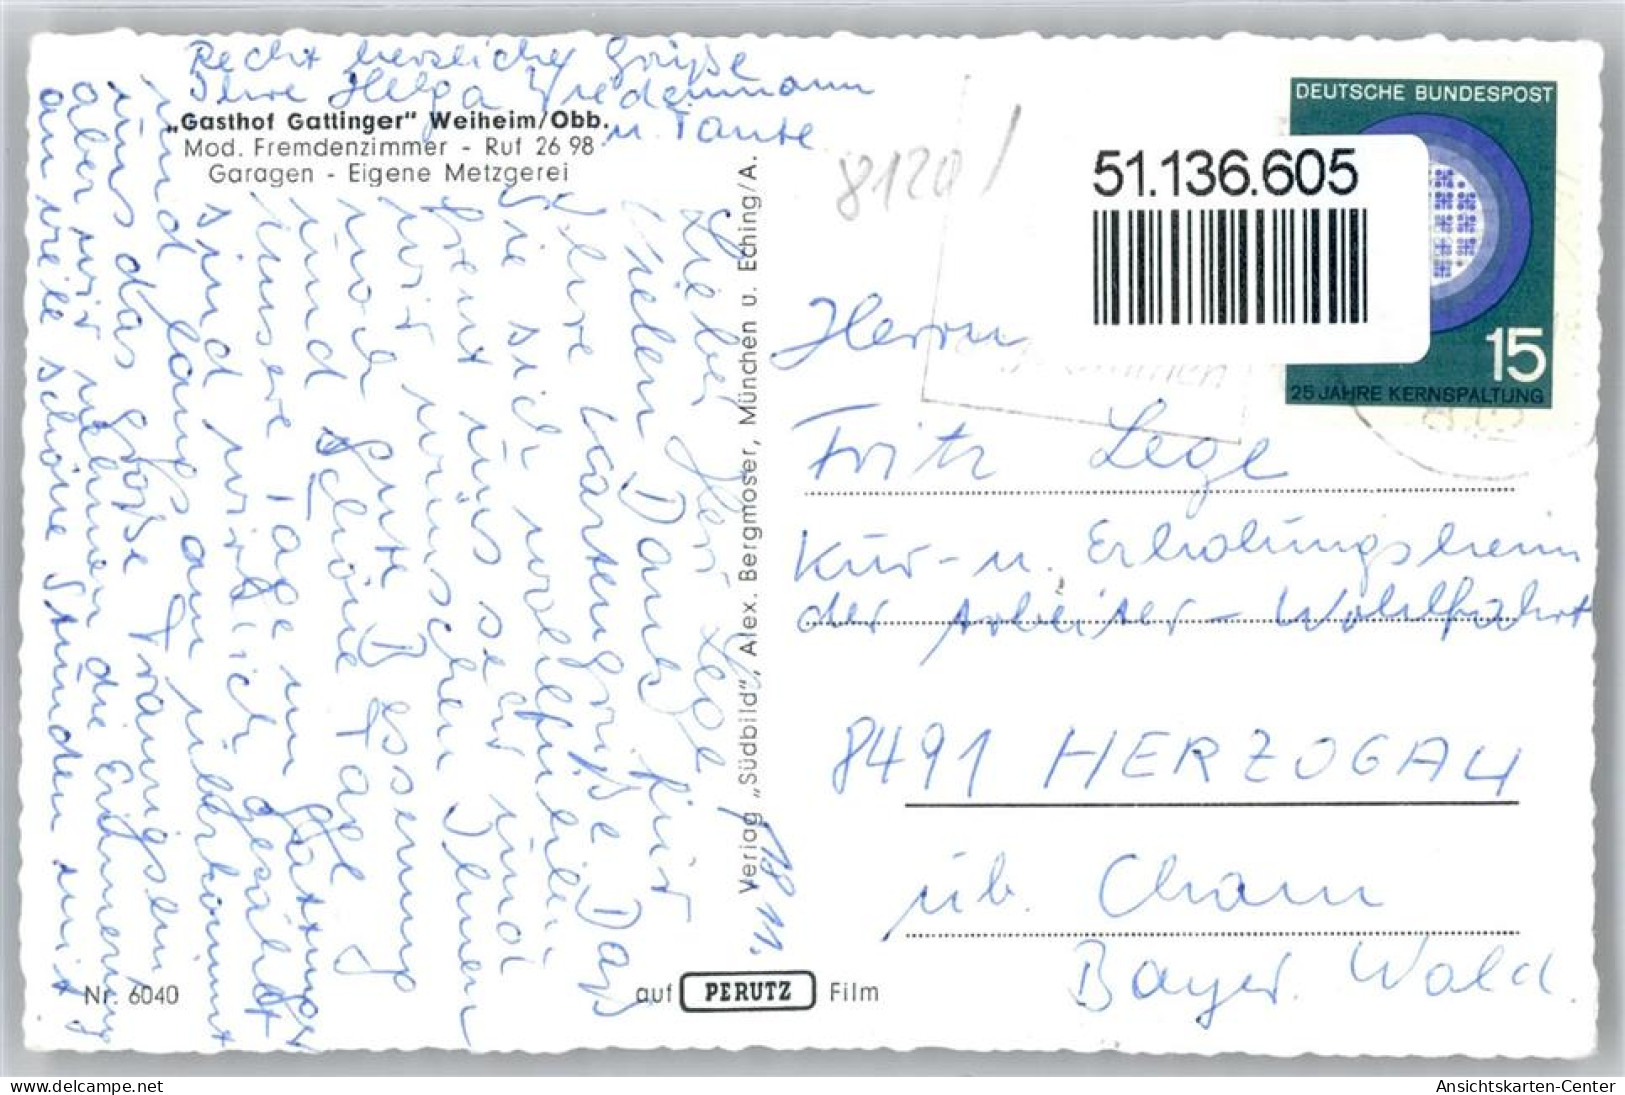 Recht herzliche Grüße
Ihre Helga Wiedenmann
u. Tante
„Gasthof Gattinger" Weilheim/Obb.
Mod. Fremdenzimmer - Ruf 26 98
Garagen - Eigene Metzgerei
Lieber Herr Lege
Vielen Dank für
Ihre Kartengrüße Daß
Sie sich wohlfühlen
freut uns sehr und
wir wünschen Ihnen
noch gute Besserung
und schöne Tage
unsere Tage im
sind wirklich gezählt
und langsam überkommt
uns das große
aber wir nehmen die Erinnerung
an viele schöne Stunden mit
18 11.
Verlag „Südbild", Alex. Bergmoser, München u. Eching/A.
Nr. 6040
auf PERUTZ Film
8120
51.136.605
DEUTSCHE BUNDESPOST
15
25 JAHRE KERNSPALTUNG
Herrn
Fritz Lege
Kur- u. Erholungsheim
der Arbeiter-Wohlfahrt
8491 HERZOGAU
üb. Cham
Bayer. Wald.
delcampe.net
Ansichtskarten-Center